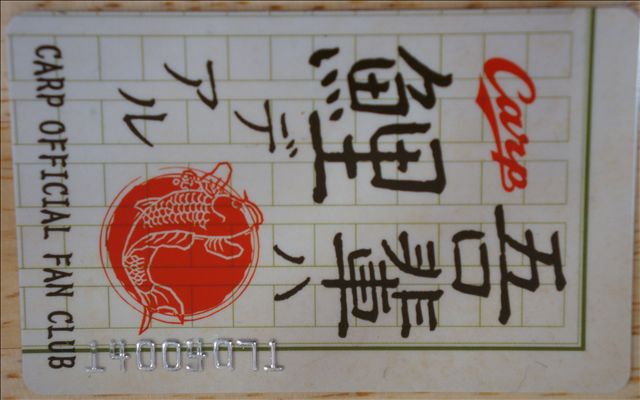 Carp
吾輩ハ
鯉デアル
CARP OFFICIAL FAN CLUB